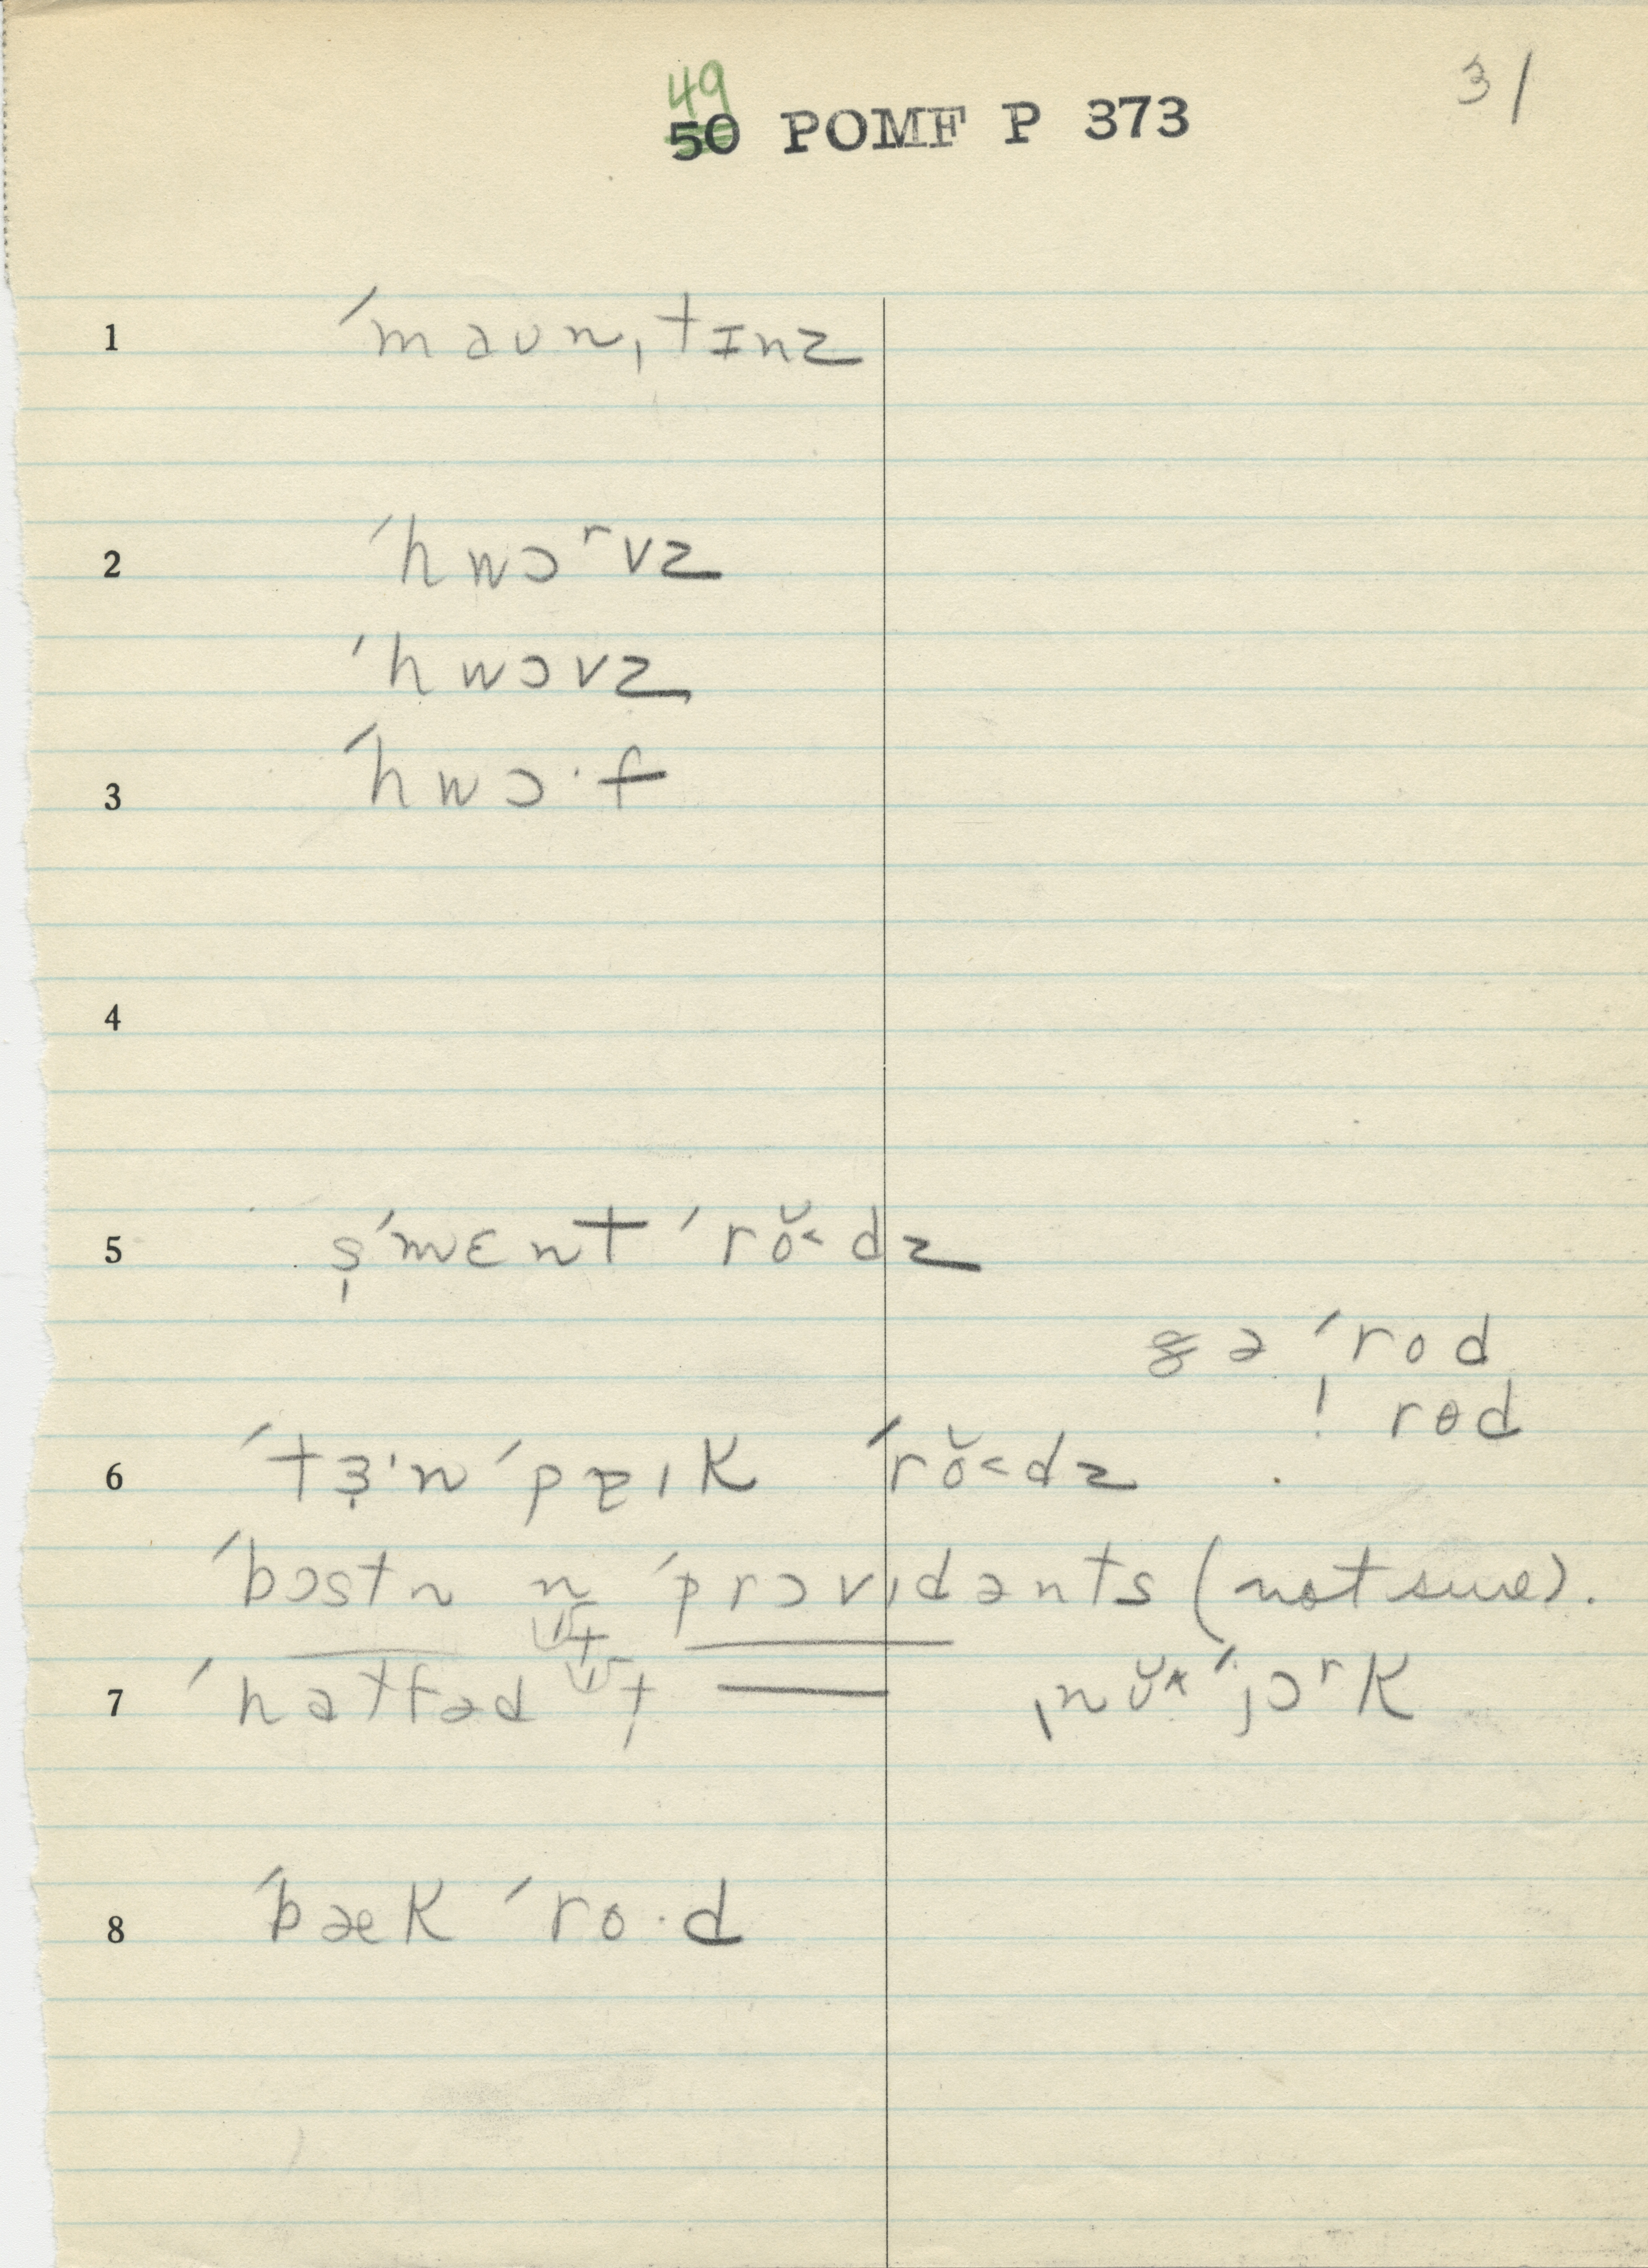 49
50 POMF P 373
31
1 ˈmaʊnˌtɪnz
2 ˈhwɔʳvz
ˈhwɔvz
3 ˈhwɔ·f
4
5 s̩ˈmɛnt ˈrŏ˂dz
gəˈrod
! rɵd
6 ˈtɜ·n ˈpɐɪk ˈrŏ˂dz
ˈbɔstn n ˈprɔvɪdənts (not sure).
7 ˈhatfəd ˌnŭˈjɔʳk
8 ˈbæk ˈro·d